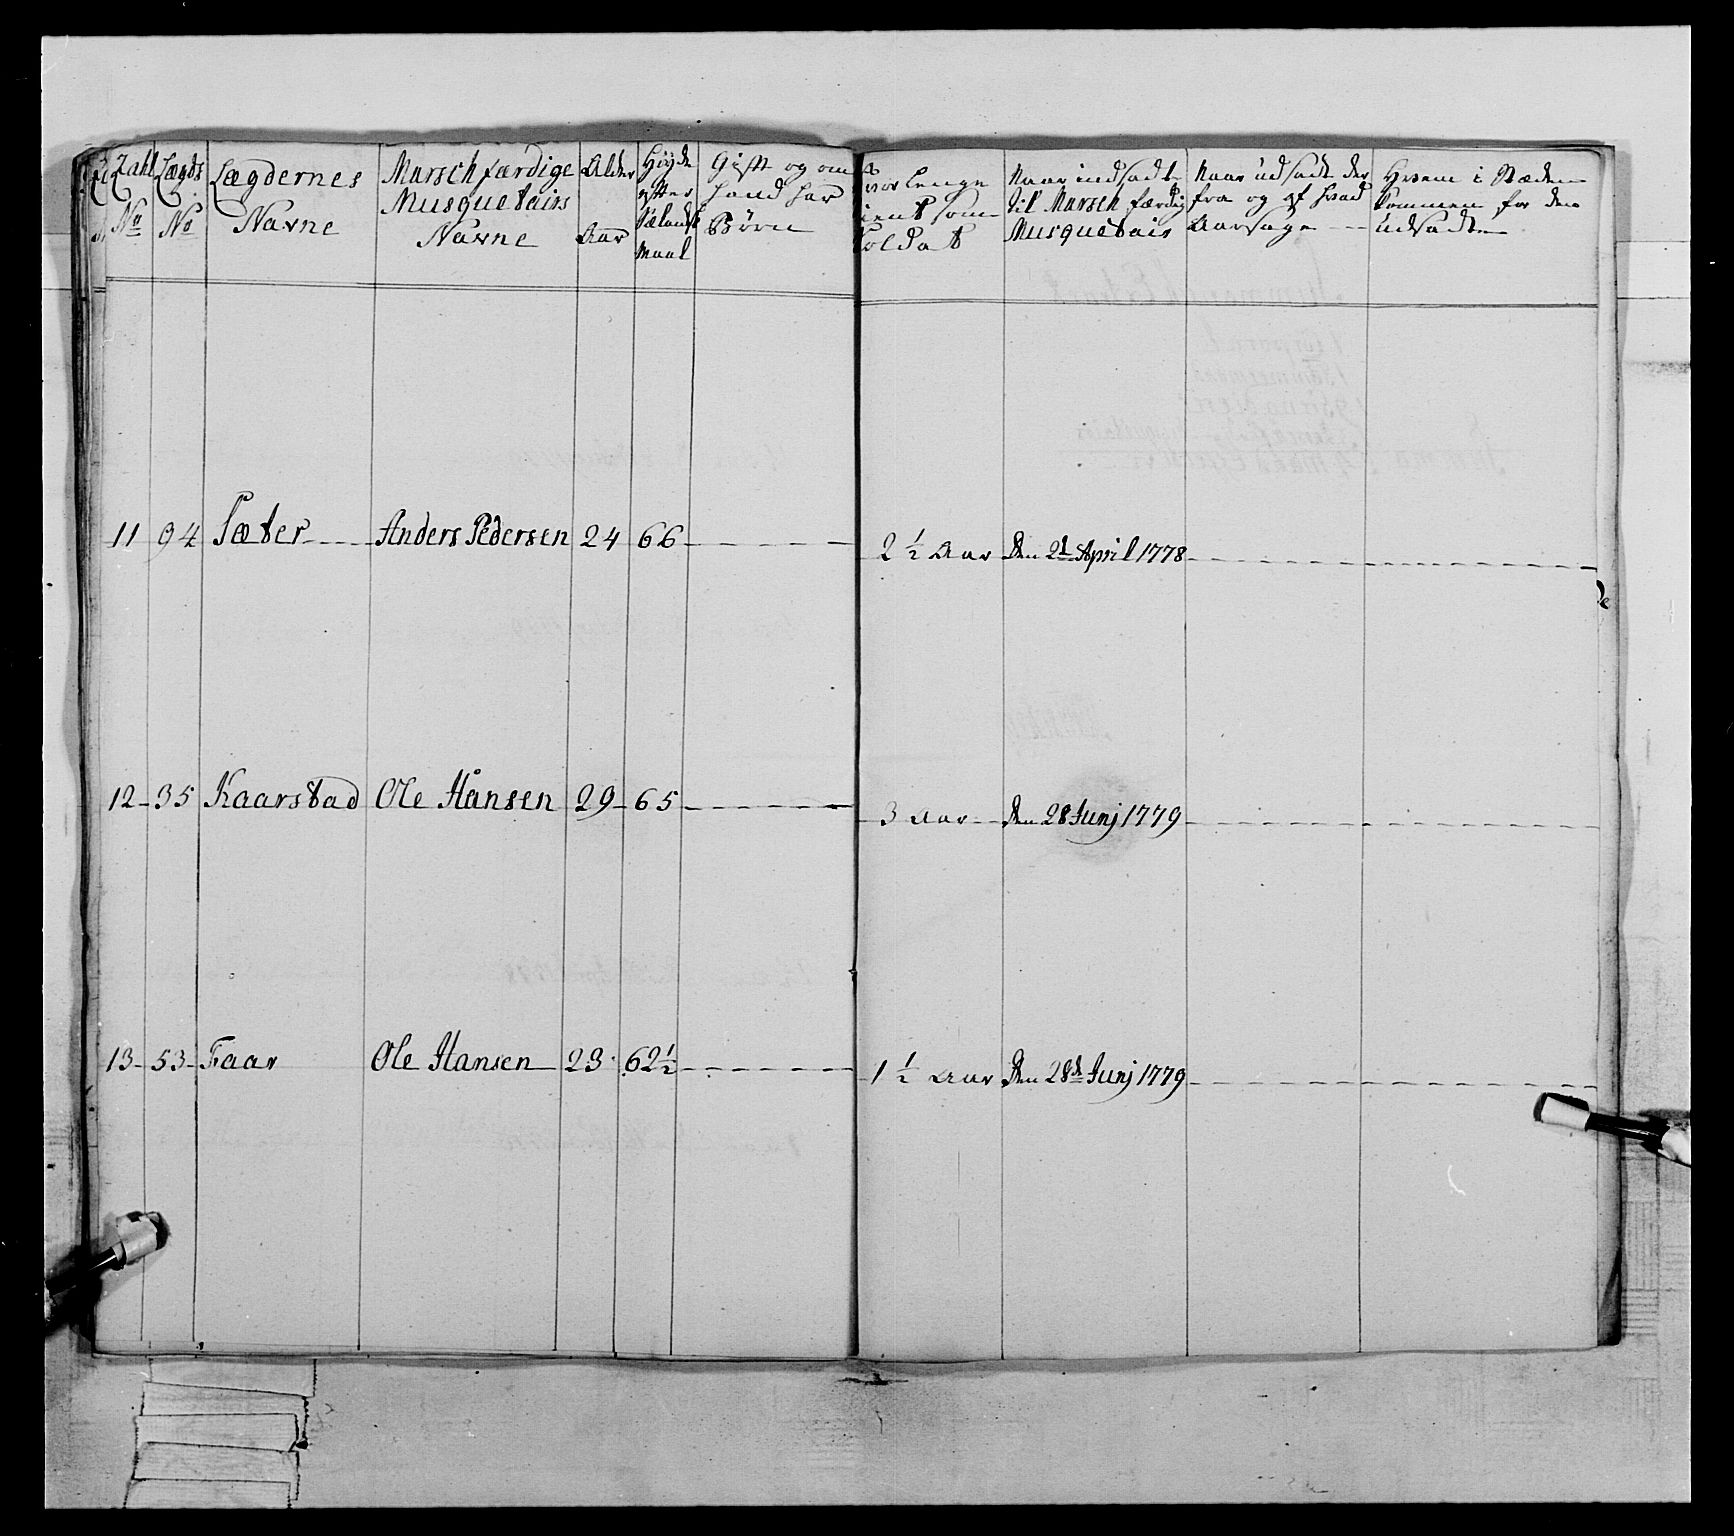 Zahl No
Lægds No
Lægdernes Navne
Marschfærdige Musquetairs Navne
Alder Aar
Høyde efter Siælandsk Maal
Gift og om hand har Børn
vor lenge tient som Soldat
Naar indsadt til Marschfærdig Musquetair
Naar udsadt der fra og af hvad Aarsage
Hvem i Stæden kommen for den udsadte
11 94 Sæter Anders Pedersen 24 66 2 1/2 Aar Den 2d April 1778
12 35 Kaarstad Ole Hansen 29 65 3 Aar Den 28 Junj 1779
13 53 Faar Ole Hansen 23 62 1/2 1 1/2 Aar Den 28d Junj 1779